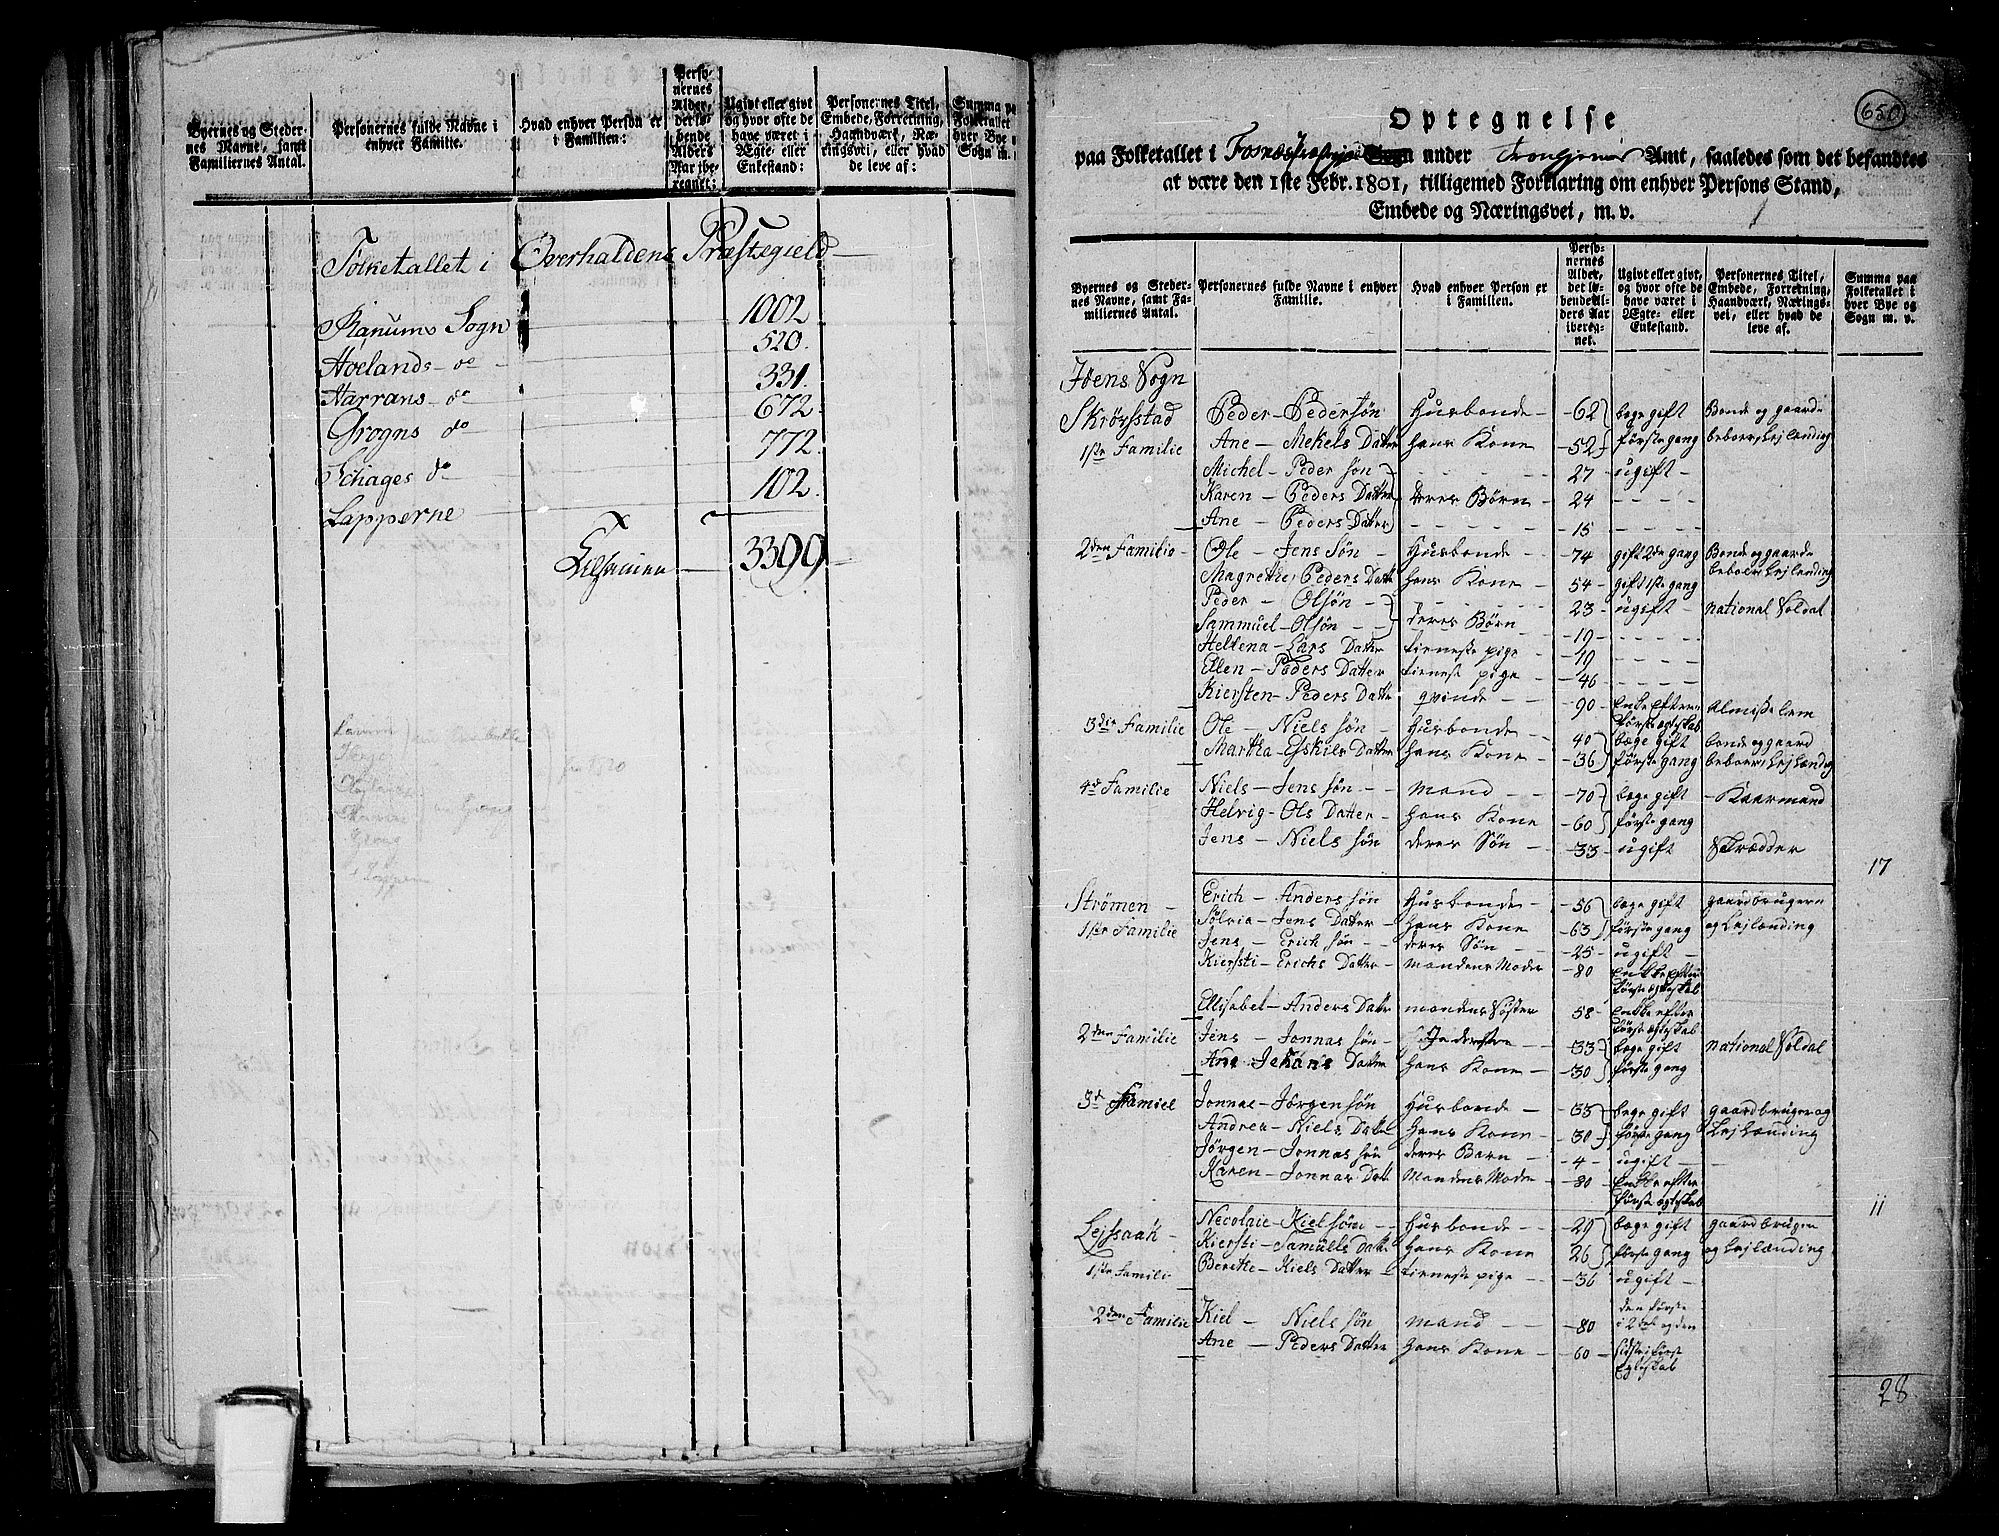 Byernes og Steder-
nes Navne, samt
Familiernes Antal.
Personernes fulde Navne i
enhver Familie.
Hvad enhver Person er
i Familien:
Perso-
nernes
Alder,
det lø-
bende
Alders
Aar ibe-
regnet:
Ugivt eller givt
og hvor ofte de
have været i
Ægte- eller
Enkestand:
Personernes Titel,
Embede, Forretning,
Haandværk, Næ-
ringsvei, eller hvad
de leve af:
Summa paa
Folketallet
hver Bye
Sogn m.
Folketallet i Overhaldens Præstegield
Ranums Sogn 1002
Hoelands do 520.
Harrans do 331.
Grogns do 672.
Schages do 772.
Lapperne 102.
Tilsamen 3399
650
Optegnelse
paa Folketallet i Fosnæs under Tronhjems Amt, saaledes som det befandtes
at være den 1ste Febr. 1801, tilligemed Forklaring om enhver Persons Stand,
Embede og Næringsvei, m. v.
Byernes og Steder-
nes Navne, samt Fa-
miliernes Antal.
Personernes fulde Navne i enhver
Familie.
Hvad enhver Person er
i Familien.
Perso-
nernes
Alder,
det lø-
bende Al-
ders Aar
ibereg-
net.
Ugivt eller givt,
og hvor ofte de
have været i
Ægte- eller
Enkestand.
Personernes Titel,
Embede, Forretning,
Haandværk, Nærings-
vei, eller hvad de
leve af.
Summa paa
Folketallet i
hver Bye og
Sogn m. v.
Föens Sogn
Skrörstad Peder - Pedersøn Husbonde - 62 bege gift Bonde og gaard
1ste Familie Ane - Mekels Datter hans Kone - 52 første gang beboer Lejlending
Michel - Peder søn 27 ugift -
Karen - Peders Datter deres Børn - 24
Ane - Peders Datter - 15
2den Familie - Ole - Jens Søn - Husbonde - 74 gift 2de gang Bonde og gaard
Magrethe Peders Datter hans Kone - 54 - gift 1ste gang beboer Lejlending
Peder - Olsøn 23 - ugift - national Soldat
Sammuel - Olsøn deres Børn - 19 -
Hellena - Lars Datter tieneste pige - 19
Ellen - Peders Datter tieneste pige - 46
Kiersten - Peders Datter qvinde - 90 Enke Efter Almisse lem
første egteskab
3die Familie Ole - Niels søn - Husbonde - 40 bæge gift bonde og gaard
Martha - Eskils Datter hans Kone - 36 første gang beboer Lejlænding
4de Familie Niels - Jens søn - mand - 70 bæge gift - Kaarmand
Helvig - Ols Datter - hans Kone - 60 første gang
Jens - Niels søn deres Søn - 33 - ugift Skrædder
17
Strömen - Erich - Anders søn Husbonde - 56 bæge gift gaardbrugere
1ste Familie Sølvia - Jens Datter - hans Kone - 63 første gang og Lejlænding
Jens - Erich søn deres Søn - 25 - ugift -
Kiersti - Erichs Datter - mandens Moder - 80 Enke Efter
første egteskab
Ellisabet - Anders Datter mandens Søster 58 - Enke efter
første egteskab
2den Familie Jens - Jonnas søn - - 33 bæge gift national Soldat
Ane Jehans Datter hans Kone - 30 første gang
3d Famiel Jonnas - Jørgen søn Husbonde - 33 bæge gift gaardbruger og
Andrea - Niels Datter hans Kone - 30 første gang Lejlænding
Jørgen - Jonnas søn deres Barn - 4 - ugift -
Karen - Jonnas Datt Mandens Moder - 80 Enke efter
første egteskab
11
Lejssaak - Necolaie - Kielsøn - Husbonde - 29 bæge gift gaardbruger
1ste Famili Kiersti - Samuels Datter hans Kone 26 første gang og Lejlænding
Berette - Kiels Datter - tieneste pige - 36 ugift -
2den Familie Kiel - Niels søn mand - 80 den første
i 2det og den
Ane - Peders Datter hans Kone - 60 - sidste i først
Egteskab
28